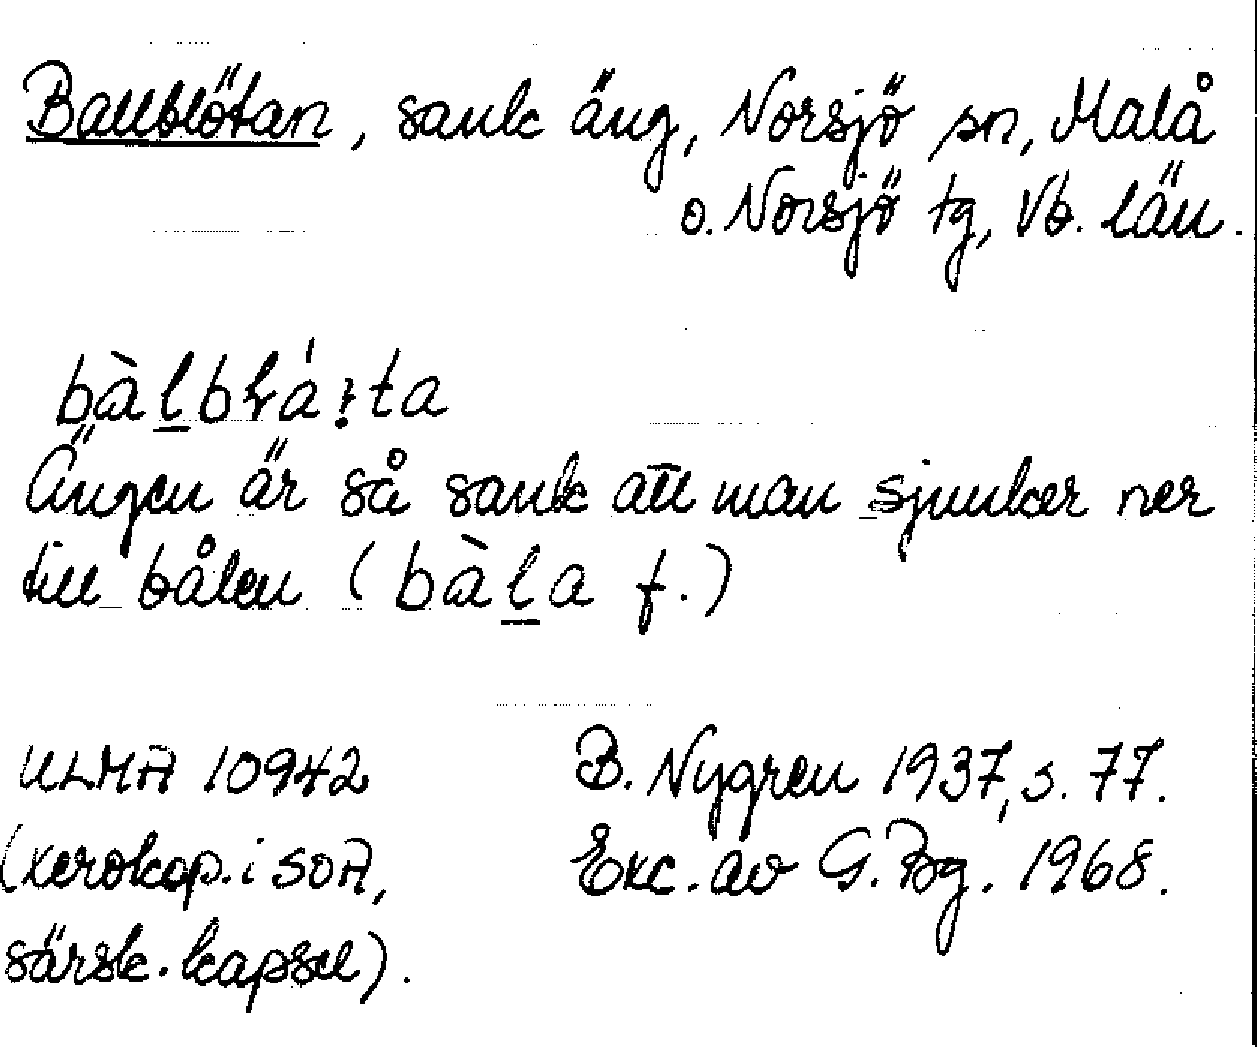 Ballblötan, sank äng, Norsjö sn, Malå
o. Norsjö tg, Vb. län.
bàl̲bɫá:ta
Ängen är så sank att man sjunker ner
till bålen (bàl̲a f.)
ULMA 10942
(xerokop. i SOA,
särsk. kapsel).
B. Nygren 1937, s. 77.
Exc. av G. Bg. 1968.